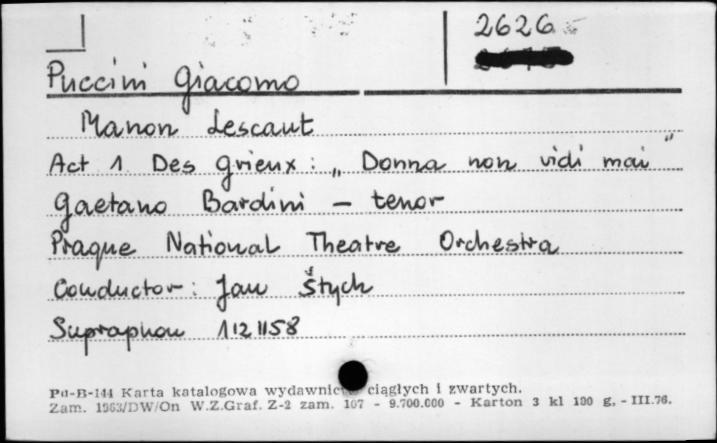 2626
Puccini Giacomo
Manon Lescaut
Act 1. Des Grieux: „Donna non vidi mai"
Gaetano Bardini – tenor
Prague National Theatre Orchestra
Conductor: Jan Štych
Supraphon 1121158
Pu-B-144 Karta katalogowa wydawnictw ciągłych i zwartych.
Zam. 1963/DW/On W.Z.Graf. Z-2 zam. 107 - 9.700.000 - Karton 3 kl 190 g. - III.76.